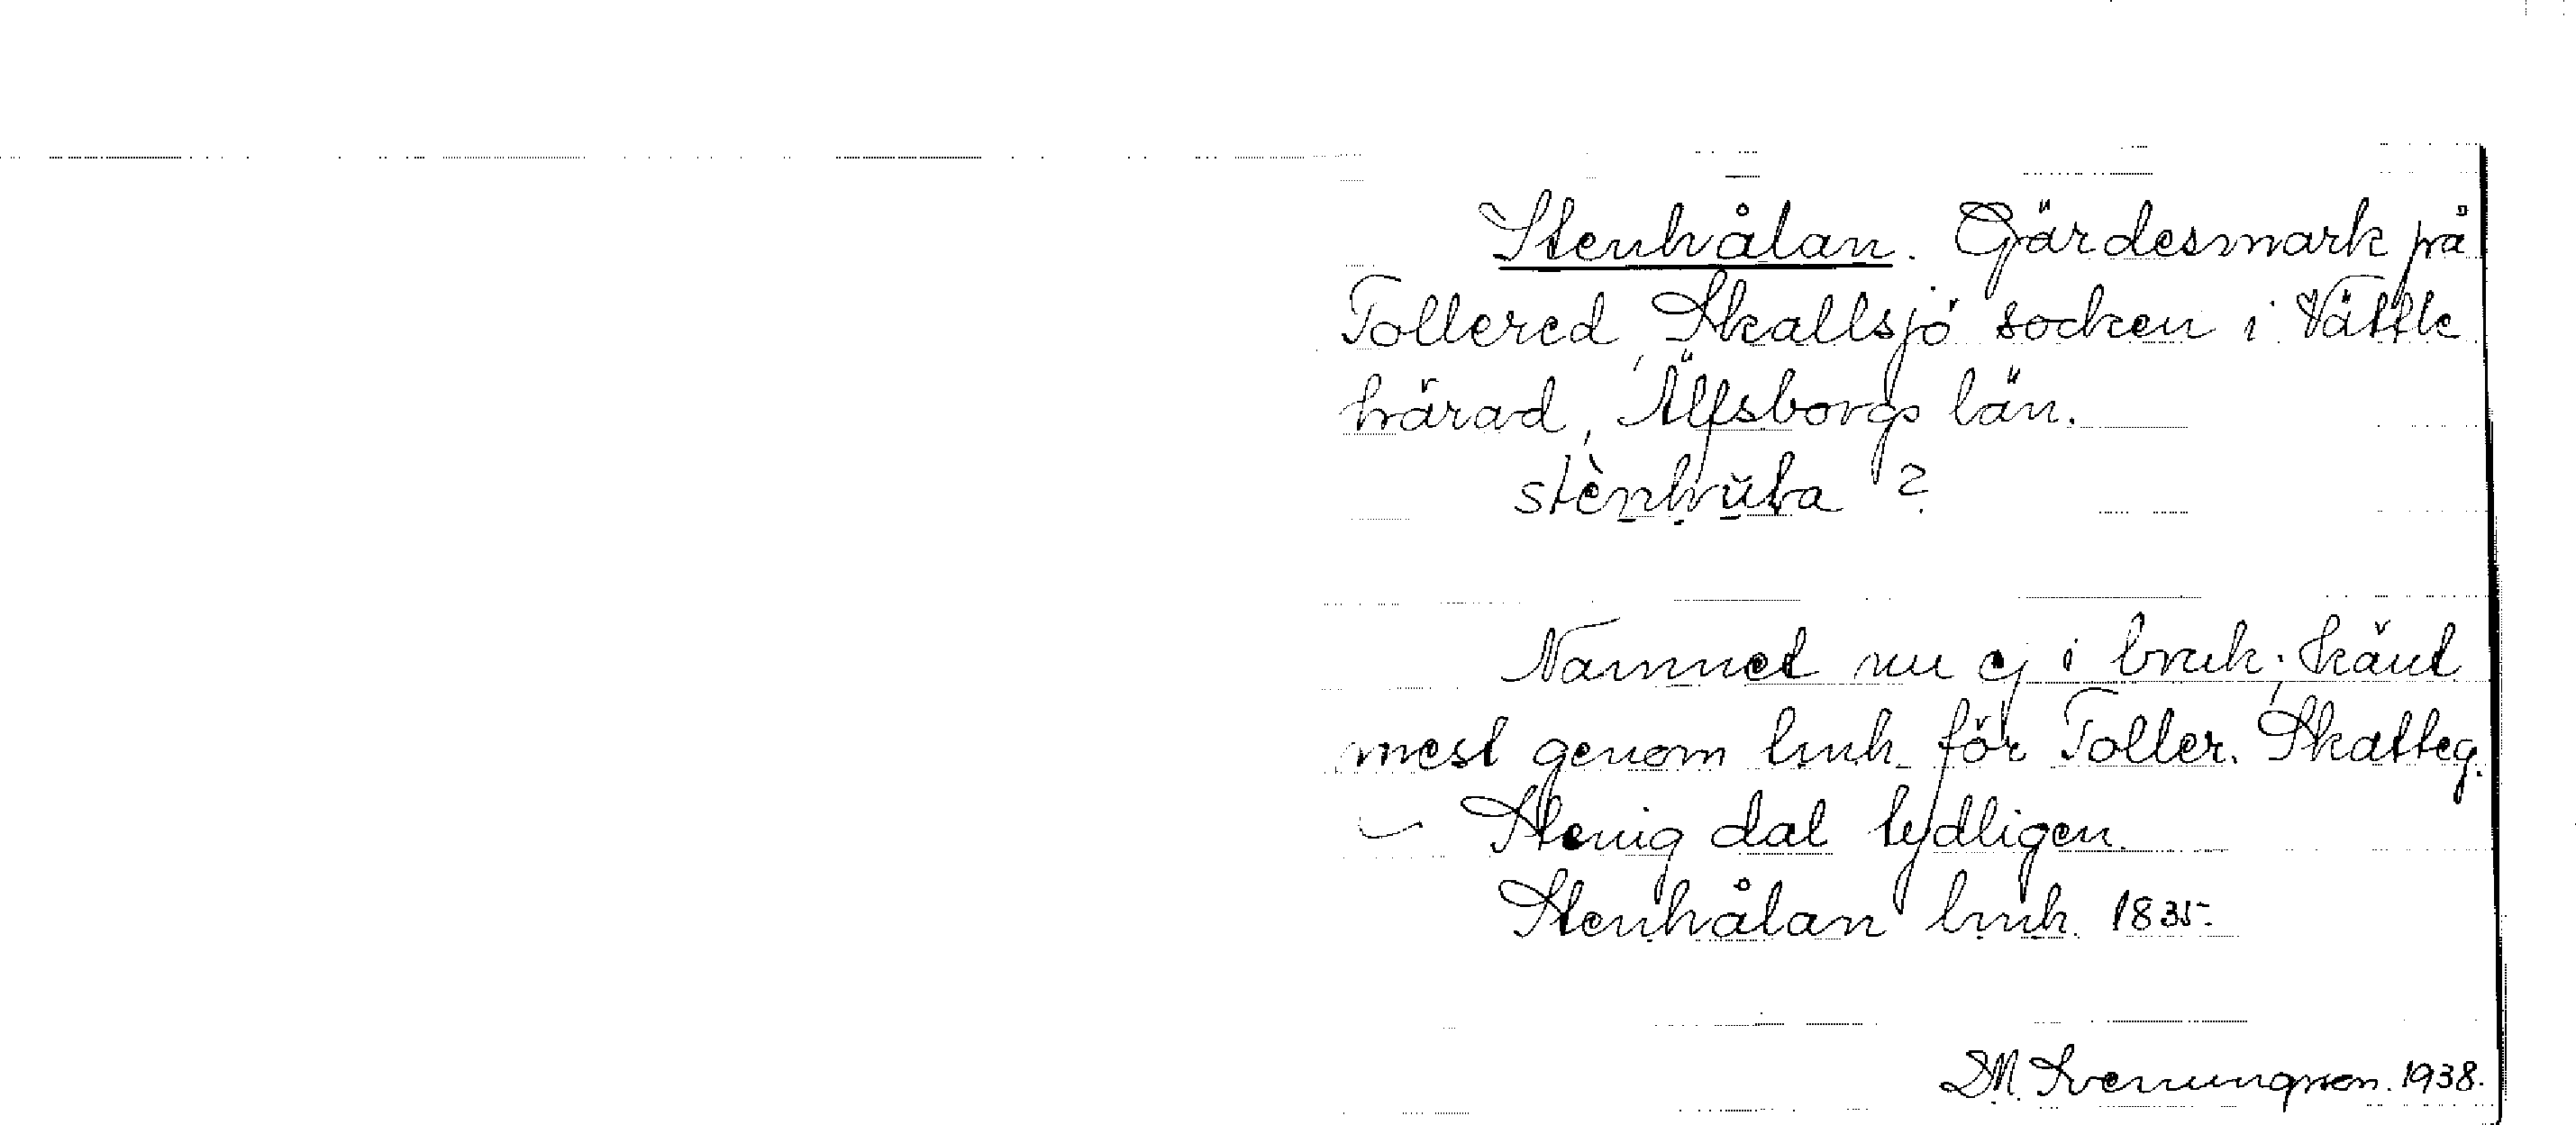 Stenhålan. Gärdesmark på
Tollered, Skallsjö socken i Vättle
härad, Älfsborgs län.
stènhu̇̆la ?
Namnet nu ej i bruk; känt
mest genom lmh. för Toller. Skatteg.
– Stenig dal tydligen.
Stenhålan lmh. 1835.
D.M. Svenungsson. 1938.